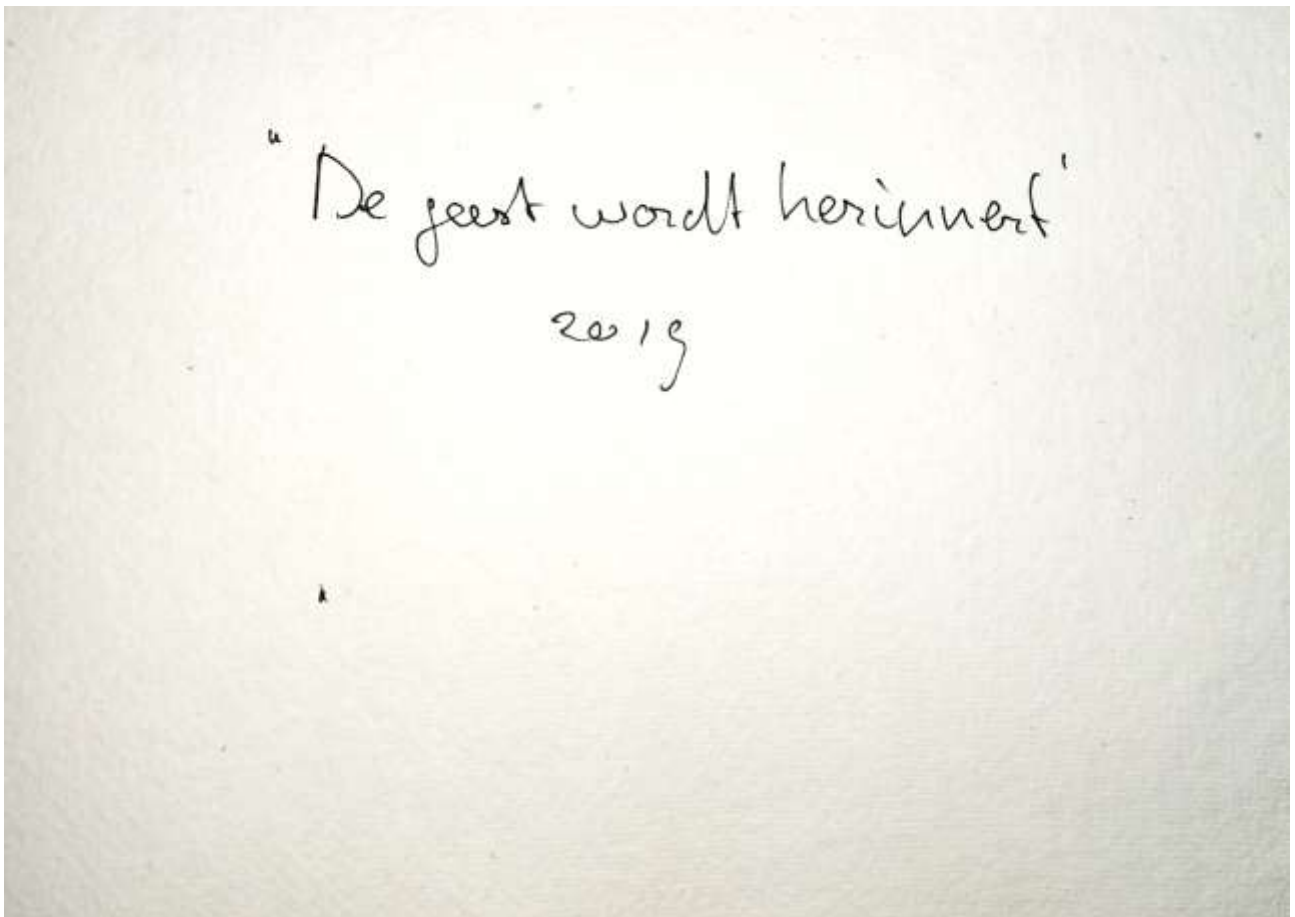 "De geest wordt herinnert'
2019